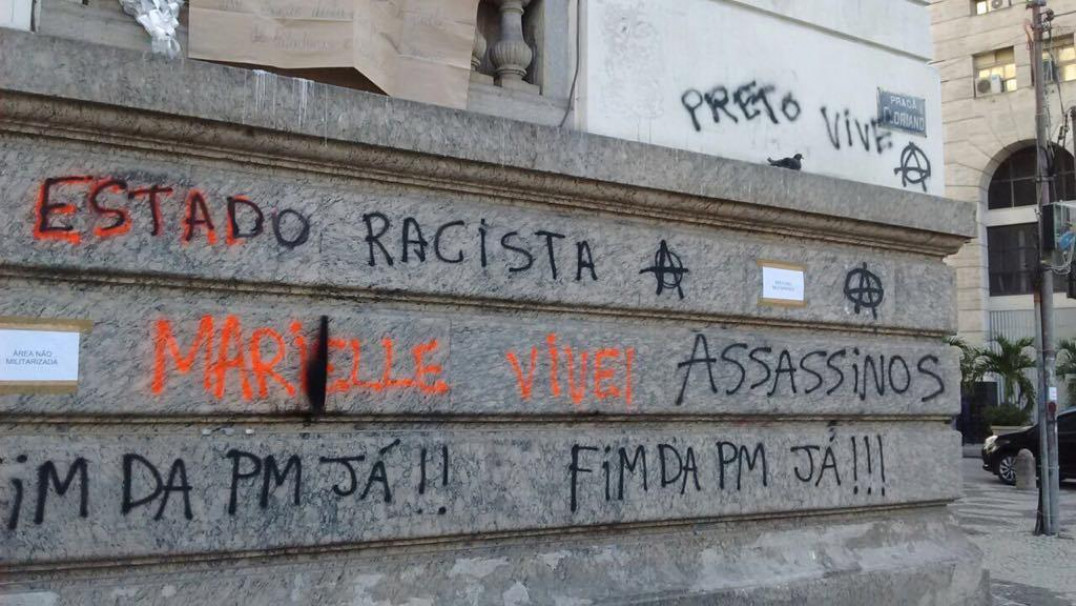 PRETO VIVE
PRAÇA
FLORIANO
ESTADO RACISTA
ÁREA NÃO
MILITARIZADA
MARIELLE VIVE! ASSASSINOS
FIM DA PM JÁ!!
FIM DA PM JÁ!!!